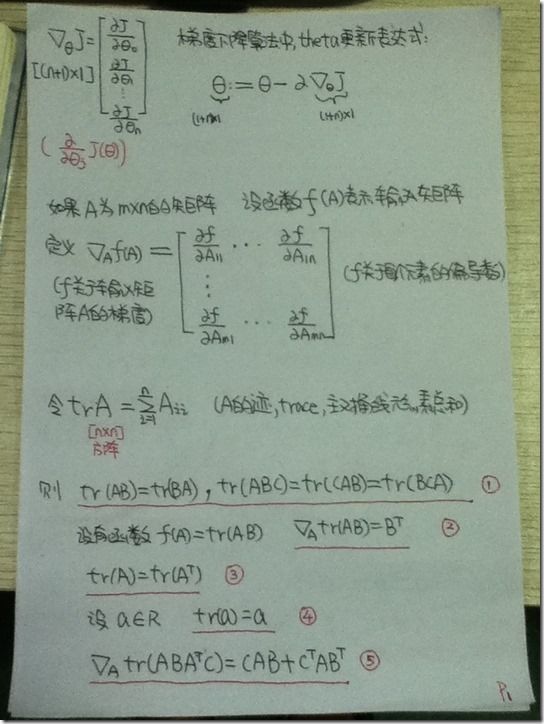 ∇_θ J = [∂J/∂θ₀ ∂J/∂θ₁ ⋮ ∂J/∂θₙ] 梯度下降算法中,theta更新表达式:
[(n+1)×1]
θ := θ - ∂∇_θJ
(1+n)×1 (1+n)×1
(∂/∂θⱼ J(θ))
如果A为m×n的矩阵 设函数f(A)表示输入为矩阵
定义 ∇_A f(A) = [∂f/∂A₁₁ ··· ∂f/∂A₁ₙ ⋮ ∂f/∂Aₘ₁ ··· ∂f/∂Aₘₙ] (f关于每个元素的偏导数)
(f关于输入矩
阵A的梯度)
令 trA = Σⁿᵢ₌₁ Aᵢᵢ (A的迹,trace,主对角线元素总和)
[n×n]
方阵
则 tr(AB)=tr(BA), tr(ABC)=tr(CAB)=tr(BCA) ①
设有函数 f(A)=tr(AB) ∇_A tr(AB)=Bᵀ ②
tr(A)=tr(Aᵀ) ③
设 a∈R tr(a)=a ④
∇_A tr(ABAᵀC)=CAB+CᵀABᵀ ⑤
P₁